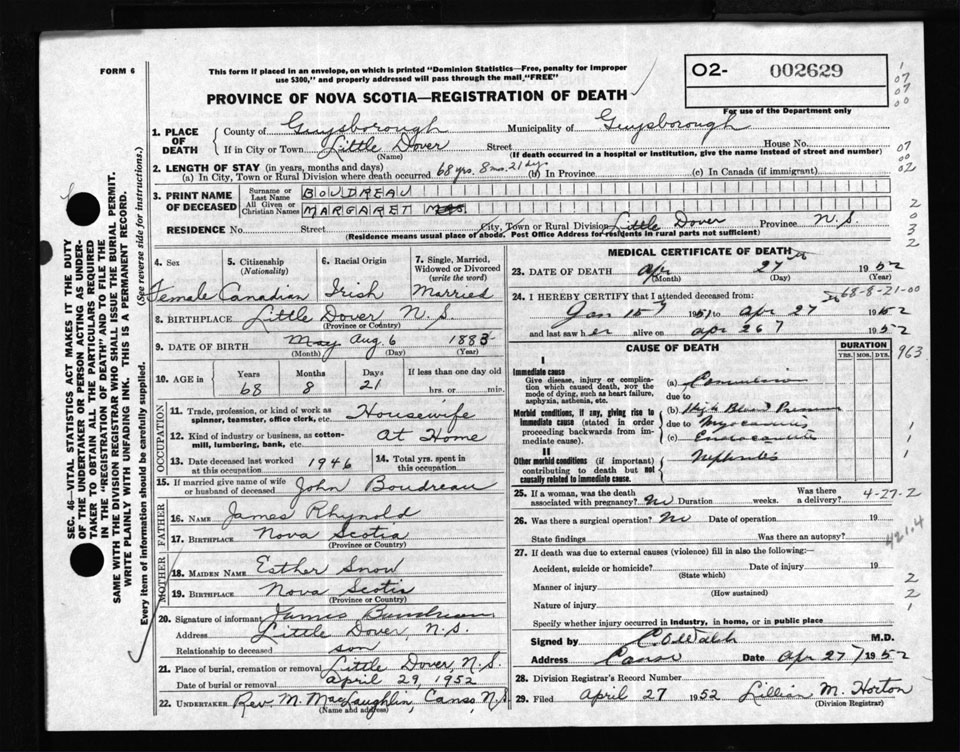 FORM 6
This form if placed in an envelope, on which is printed "Dominion Statistics—Free, penalty for improper
use $300," and properly addressed will pass through the mail "FREE"
O2- 002629
For use of the Department only
PROVINCE OF NOVA SCOTIA—REGISTRATION OF DEATH
1. PLACE OF DEATH
County of Guysborough Municipality of Guysborough
If in City or Town Little Dover Street House No.
(Name) (If death occurred in a hospital or institution, give the name instead of street and number)
2. LENGTH OF STAY (in years, months and days)
(a) In City, Town or Rural Division where death occurred 68 yrs. 8 mos. 21 dys (b) In Province (c) In Canada (if immigrant)
3. PRINT NAME OF DECEASED
Surname or Last Name BOUDREAU
All Given or Christian Names MARGARET
RESIDENCE No. Street City, Town or Rural Division Little Dover Province N.S.
(Residence means usual place of abode. Post Office Address for residents in rural parts not sufficient)
4. Sex 5. Citizenship (Nationality) 6. Racial Origin 7. Single, Married, Widowed or Divorced (write the word)
Female Canadian Irish Married
8. BIRTHPLACE Little Dover N.S.
(Province or Country)
9. DATE OF BIRTH May Aug. 6 1883
(Month) (Day) (Year)
10. AGE in Years Months Days If less than one day old
68 8 21 hrs. or min.
OCCUPATION
11. Trade, profession, or kind of work as spinner, teamster, office clerk, etc. Housewife
12. Kind of industry or business, as cotton-mill, lumbering, bank, etc. At Home
13. Date deceased last worked at this occupation 1946 14. Total yrs. spent in this occupation
15. If married give name of wife or husband of deceased John Boudreau
FATHER
16. NAME James Rhynold
17. BIRTHPLACE Nova Scotia
(Province or Country)
MOTHER
18. MAIDEN NAME Esther Snow
19. BIRTHPLACE Nova Scotia
(Province or Country)
20. Signature of informant James Boudreau
Address Little Dover, N.S.
Relationship to deceased son
21. Place of burial, cremation or removal Little Dover, N.S.
Date of burial or removal April 29, 1952
22. UNDERTAKER Rev. M. MacLaughlin, Canso, N.S.
(Name and address)
MEDICAL CERTIFICATE OF DEATH
23. DATE OF DEATH Apr 27 1952
(Month) (Day) (Year)
68-8-21-00
24. I HEREBY CERTIFY that I attended deceased from:
Jan 15 1951 to Apr 27 1952
and last saw her alive on Apr 26 1952
CAUSE OF DEATH DURATION
YRS. MOS. DYS.
963
I
Immediate cause
Give disease, injury or complication which caused death, NOT the mode of dying, such as heart failure, asphyxia, asthenia, etc.
(a)
due to
Morbid conditions, if any, giving rise to immediate cause (stated in order proceeding backwards from immediate cause).
(b) High Blood Pressure
due to Myocarditis
(c) Endocarditis
II
Other morbid conditions (if important) contributing to death but not causally related to immediate cause.
Nephritis
25. If a woman, was the death associated with pregnancy? No Duration weeks. Was there a delivery?
4-27-2
26. Was there a surgical operation? No Date of operation 19
State findings Was there an autopsy?
421.4
27. If death was due to external causes (violence) fill in also the following:—
Accident, suicide or homicide? Date of injury 19
(State which)
Manner of injury
(How sustained)
Nature of injury
Specify whether injury occurred in industry, in home, or in public place
Signed by C O Walsh M.D.
Address Canso Date Apr 27 1952
28. Division Registrar's Record Number
29. Filed April 27 1952 Lillian M. Horton
(Division Registrar)
SEC. 46—VITAL STATISTICS ACT MAKES IT THE DUTY
OF THE UNDERTAKER OR PERSON ACTING AS UNDERTAKER TO OBTAIN ALL THE PARTICULARS REQUIRED
IN THE "REGISTRATION OF DEATH" AND TO FILE THE
SAME WITH THE DIVISION REGISTRAR WHO SHALL ISSUE THE BURIAL PERMIT.
WRITE PLAINLY WITH UNFADING INK. THIS IS A PERMANENT RECORD.
Every item of information should be carefully supplied. (See reverse side for instructions.)